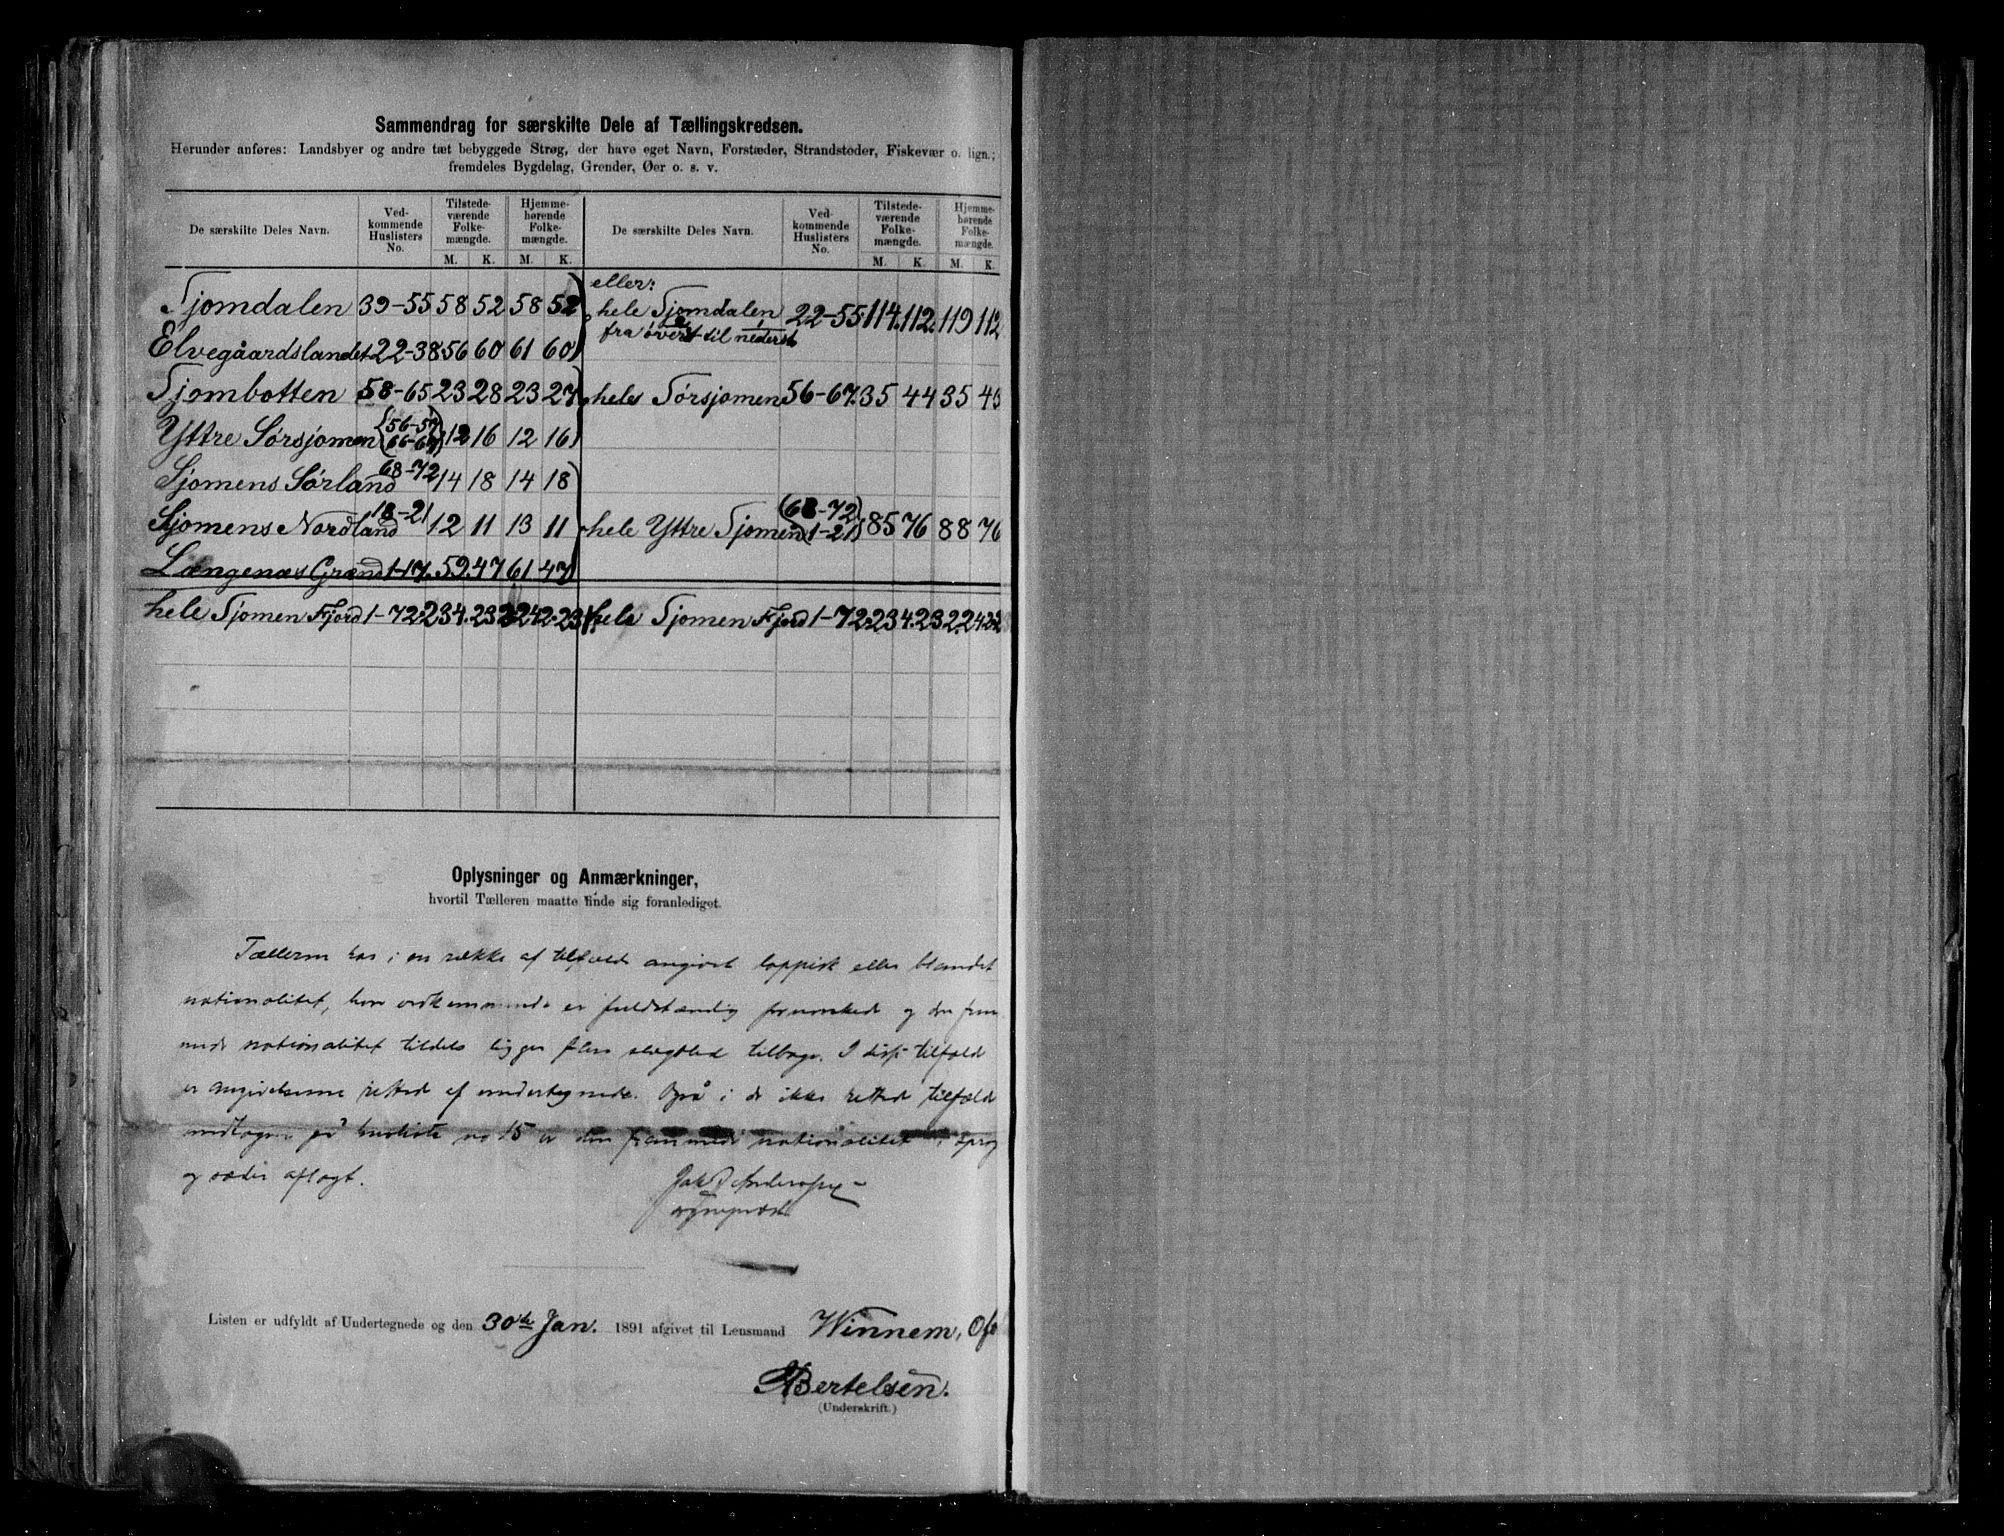 Sammendrag for særskilte Dele af Tællingskredsen.
Herunder anføres: Landsbyer og andre tæt bebyggede Strøg, der have eget Navn, Forstæder, Strandsteder, Fiskevær o. lign.;
fremdeles Bygdelag, Grender, Øer o. s. v.
De særskilte Deles Navn. Ved-kommende Huslisters No. Tilstede-værende Folke-mængde. M. K. Hjemme-hørende Folke-mængde. M. K. De særskilte Deles Navn. Ved-kommende Huslisters No. Tilstede-værende Folke-mængde. M. K. Hjemme-hørende Folke-mængde. M. K.
eller:
Sjomdalen 39-55 58 52 58 52 hele Sjomdalen 22-55 114. 112. 119 112
fra øverst til nederst
Elvegåardslandet 22-38. 56 60 61 60
Sjombotten 58-65 23 28 23 27 hele Sørsjomen 56-67. 35 44 35 43
Yttre Sørsjomen (56-57) (66-67) 12 16 12 16
Sjomens Sørland 68-72 14 18 14 18
Sjomens Nordland 18-21 12 11 13 11 hele Yttre Sjomen (68-72) (1-21) 85 76 88 76
Længenæs Grænd 1-17. 59. 47 61 47
hele Sjomen Fjord 1-72. 234. 232 242. 231. hele Sjomen Fjord 1-72. 234. 232. 242.
Oplysninger og Anmærkninger,
hvortil Tælleren maatte finde sig foranlediget.
Tælleren har i en række af tilfælde angivet lappisk eller blandet
nationalitet, hvor vedkommende er fuldstændig fornorskede og den frem
mede nationalitet tildels ligger flere slægtled tilbage. I disse tilfælde
er angivelserne rettede af undertegnede. Også i de ikke rettede tilfælde
medtagne på husliste no 15 er den fremmede nationalitet i sprog
og sæder aflagt.
Listen er udfyldt af Undertegnede og den 30te Jan. 1891 afgivet til Lensmand Winnem, Of
Bertelsen.
(Underskrift.)